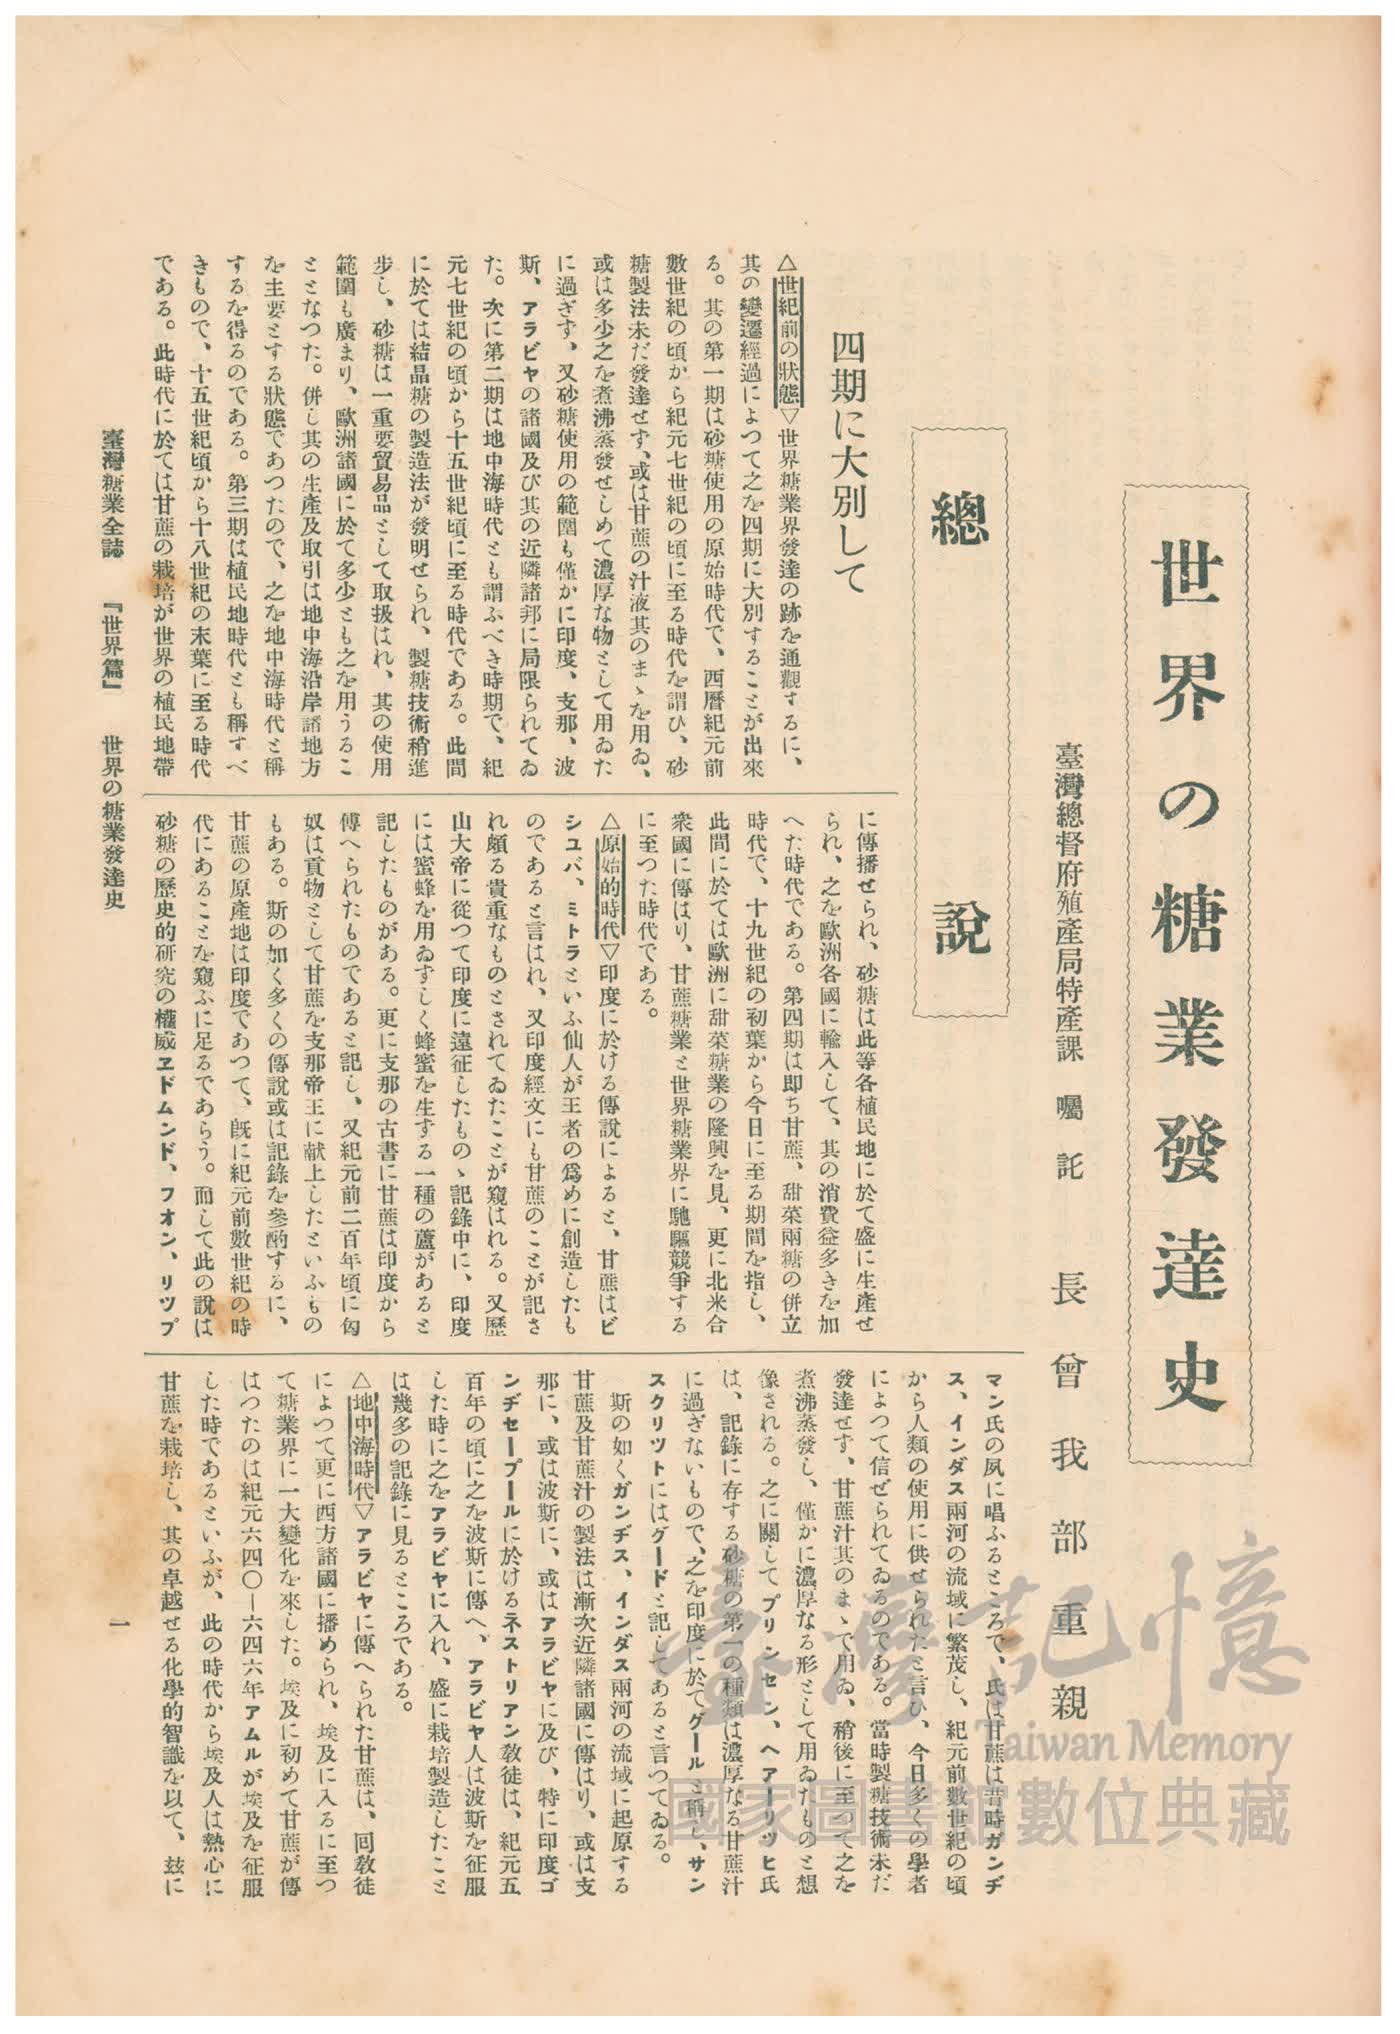 世界の糖業發達史
臺灣總督府殖產局特產課 囑託 長曾我部重親
總說
四期に大別して
△世紀前の狀態▽世界糖業界發達の跡を通觀するに、
其の變遷經過によつて之を四期に大別することが出來
る。其の第一期は砂糖使用の原始時代で、西曆紀元前
數世紀の頃から紀元七世紀の頃に至る時代を謂ひ、砂
糖製法未だ發達せず、或は甘蔗の汁液其のまゝを用ゐ、
或は多少之を煮沸蒸發せしめて濃厚な物として用ゐた
に過ぎず、又砂糖使用の範圍も僅かに印度、支那、波
斯、アラビヤの諸國及び其の近隣諸邦に局限られてゐ
た。次に第二期は地中海時代とも謂ふべき時期で、紀
元七世紀の頃から十五世紀頃に至る時代である。此間
に於ては結晶糖の製造法が發明せられ、製糖技術稍進
步し、砂糖は一重要貿易品として取扱はれ、其の使用
範圍も廣まり、歐洲諸國に於て多少とも之を用うるこ
ととなつた。併し其の生產及取引は地中海沿岸諸地方
を主要とする狀態であつたので、之を地中海時代と稱
するを得るのである。第三期は植民地時代とも稱すべ
きもので、十五世紀頃から十八世紀の末葉に至る時代
である。此時代に於ては甘蔗の栽培が世界の植民地帶
に傳播せられ、砂糖は此等各植民地に於て盛に生產せ
られ、之を歐洲各國に輸入して、其の消費益多きを加
へた時代である。第四期は卽ち甘蔗、甜菜兩糖の併立
時代で、十九世紀の初葉から今日に至る期間を指し、
此間に於ては歐洲に甜菜糖業の隆興を見、更に北米合
衆國に傳はり、甘蔗糖業と世界糖業界に馳驅競爭する
に至つた時代である。
△原始的時代▽印度に於ける傳說によると、甘蔗はビ
シユバ、ミトラといふ仙人が王者の爲めに創造したも
のであると言はれ、又印度經文にも甘蔗のことが記さ
れ頗る貴重なものとされてゐたことが窺はれる。又歷
山大帝に從つて印度に遠征したものゝ記錄中に、印度
には蜜蜂を用ゐずしく蜂蜜を生する一種の蘆があると
記したものがある。更に支那の古書に甘蔗は印度から
傳へられたものであると記し、又紀元前二百年頃に匈
奴は貢物として甘蔗を支那帝王に獻上したといふもの
もある。斯の如く多くの傳說或は記錄を參酌するに、
甘蔗の原產地は印度であつて、旣に紀元前數世紀の時
代にあることを窺ふに足るであらう。而して此の說は
砂糖の歷史的硏究の權威ヱドムンド、フオン、リツプ
マン氏の夙に唱ふるところで、氏は甘蔗は昔時ガンヂ
ス、インダス兩河の流域に繁茂し、紀元前數世紀の頃
から人類の使用に供せられたと言ひ、今日多くの學者
によつて信ぜられてゐるのである。當時製糖技術未だ
發達せず、甘蔗汁其のまゝで用ゐ、稍後に至つて之を
煮沸蒸發し、僅かに濃厚なる形として用ゐたものと想
像される。之に關してプリンセン、ヘアーリツヒ氏
は、記錄に存する砂糖の第一の種類は濃厚なる甘蔗汁
に過ぎないもので、之を印度に於てグールと稱し、サン
スクリツトにはグードと記してあると言つてゐる。
斯の如くガンヂス、インダス兩河の流域に起原する
甘蔗及甘蔗汁の製法は漸次近隣諸國に傳はり、或は支
那に、或は波斯に、或はアラビヤに及び、特に印度ゴ
ンヂセープールに於けるネストリアン敎徒は、紀元五
百年の頃に之を波斯に傳へ、アラビヤ人は波斯を征服
した時に之をアラビヤに入れ、盛に栽培製造したこと
は幾多の記錄に見るところである。
△地中海時代▽アラビヤに傳へられた甘蔗は、囘敎徒
によつて更に西方諸國に播められ、埃及に入るに至つ
て糖業界に一大變化を來した。埃及に初めて甘蔗が傳
はつたのは紀元六四〇―六四六年アムルが埃及を征服
した時であるといふが、此の時代から埃及人は熱心に
甘蔗を栽培し、其の卓越せる化學的智識を以て、玆に
臺灣糖業全誌 『世界篇』 世界の糖業發達史
一
臺灣記憶
Taiwan Memory
國家圖書館數位典藏